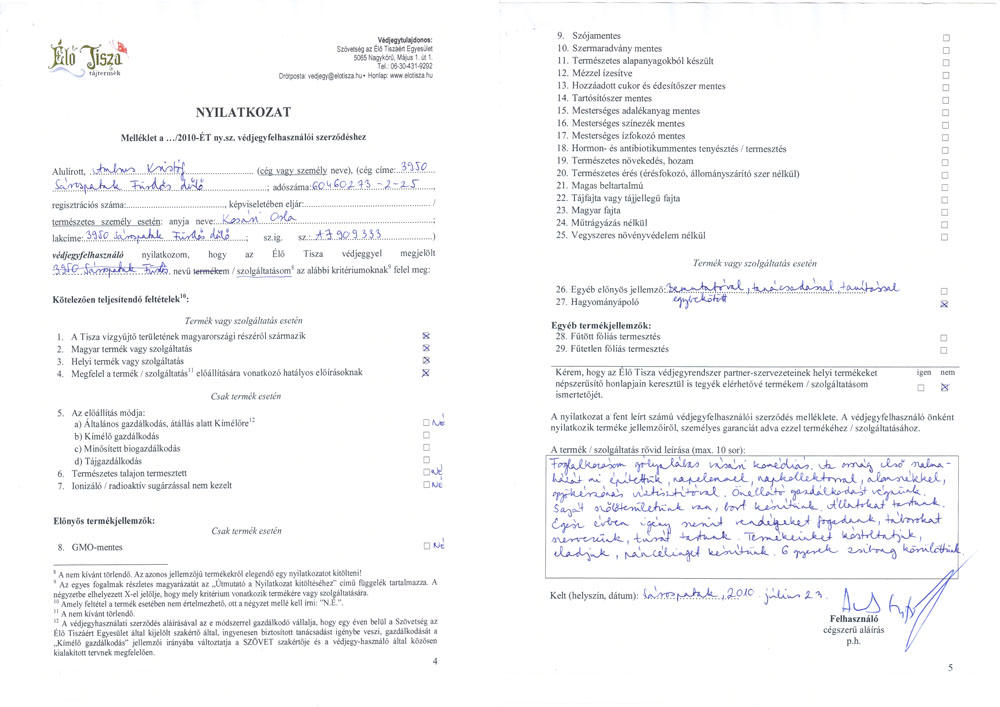 Élő Tisza
tájtermék
Védjegytulajdonos:
Szövetség az Élő Tiszáért Egyesület
5065 Nagykörű, Május 1. út 1.
Tel.: 06-30-431-9292
Drótposta: vedjegy@elotisza.hu • Honlap: www.elotisza.hu
NYILATKOZAT
Melléklet a …/2010-ÉT ny.sz. védjegyfelhasználói szerződéshez
Alulírott, Ambrus Kristóf (cég vagy személy neve), (cég címe: 3950
Sárospatak Fürdős dűlő; adószáma: 60460273-2-25,
regisztrációs száma:, képviseletében eljár: /
természetes személy esetén: anyja neve: Orla;
lakcíme: 3950 Sárospatak Fürdős dűlő; sz.ig. sz.: AJ 909333)
védjegyfelhasználó nyilatkozom, hogy az Élő Tisza védjeggyel megjelölt
3950 Sárospatak Fürdős nevű termékem / szolgáltatásom⁸ az alábbi kritériumoknak⁹ felel meg:
Kötelezően teljesítendő feltételek¹⁰:
Termék vagy szolgáltatás esetén
1. A Tisza vízgyűjtő területének magyarországi részéről származik
2. Magyar termék vagy szolgáltatás
3. Helyi termék vagy szolgáltatás
4. Megfelel a termék / szolgáltatás¹¹ előállítására vonatkozó hatályos előírásoknak
Csak termék esetén
5. Az előállítás módja:
a) Általános gazdálkodás, átállás alatt Kímélőre¹² NÉ
b) Kímélő gazdálkodás
c) Minősített biogazdálkodás
d) Tájgazdálkodás
6. Természetes talajon termesztett NÉ
7. Ionizáló / radioaktív sugárzással nem kezelt NÉ
Előnyös termékjellemzők:
Csak termék esetén
8. GMO-mentes NÉ
⁸ A nem kívánt törlendő. Az azonos jellemzőjű termékekről elegendő egy nyilatkozatot kitölteni!
⁹ Az egyes fogalmak részletes magyarázatát az „Útmutató a Nyilatkozat kitöltéséhez” című függelék tartalmazza. A
négyzetbe elhelyezett X-el jelölje, hogy mely kritérium vonatkozik termékére vagy szolgáltatására.
¹⁰ Amely feltétel a termék esetében nem értelmezhető, ott a négyzet mellé kell írni: "N.É.".
¹¹ A nem kívánt törlendő.
¹² A védjegyhasználati szerződés aláírásával az e módszerrel gazdálkodó vállalja, hogy egy éven belül a Szövetség az
Élő Tiszáért Egyesület által kijelölt szakértő által, ingyenesen biztosított tanácsadást igénybe veszi, gazdálkodását a
„Kímélő gazdálkodás” jellemzői irányába változtatja a SZÖVET szakértője és a védjegy-használó által közösen
kialakított tervnek megfelelően.
4
9. Szójamentes
10. Szermaradvány mentes
11. Természetes alapanyagokból készült
12. Mézzel ízesítve
13. Hozzáadott cukor és édesítőszer mentes
14. Tartósítószer mentes
15. Mesterséges adalékanyag mentes
16. Mesterséges színezék mentes
17. Mesterséges ízfokozó mentes
18. Hormon- és antibiotikummentes tenyésztés / termesztés
19. Természetes növekedés, hozam
20. Természetes érés (érésfokozó, állományszárító szer nélkül)
21. Magas beltartalmú
22. Tájfajta vagy tájjellegű fajta
23. Magyar fajta
24. Műtrágyázás nélkül
25. Vegyszeres növényvédelem nélkül
Termék vagy szolgáltatás esetén
26. Egyéb előnyös jellemző: Bemutatóval, tanácsadással, tanítással
egybekötött
27. Hagyományápoló
Egyéb termékjellemzők:
28. Fűtött fóliás termesztés
29. Fűtetlen fóliás termesztés
Kérem, hogy az Élő Tisza védjegyrendszer partner-szervezeteinek helyi termékeket igen nem
népszerűsítő honlapjain keresztül is tegyék elérhetővé termékem / szolgáltatásom
ismertetőjét.
A nyilatkozat a fent leírt számú védjegyfelhasználói szerződés melléklete. A védjegyfelhasználó önként
nyilatkozik terméke jellemzőiről, személyes garanciát adva ezzel termékéhez / szolgáltatásához.
A termék / szolgáltatás rövid leírása (max. 10 sor):
Foglalkozásom gólyalábas vásári komédiás. Az ország első szalma-
házát mi építettük, napelemmel, napkollektorral,
gyökérzónás víztisztítóval. Önellátó gazdálkodást végzünk.
Saját szőlőterületünk van, bort készítünk. Állatokat tartunk.
Egész évben igény szerint vendégeket fogadunk, táborokat
szervezünk, túrát tartunk. Termékeinket kóstoltatjuk,
eladjuk, páncélinget készítünk. 6 gyerek zsibong körülöttünk.
Kelt (helyszín, dátum): Sárospatak, 2010. július 23.
Felhasználó
cégszerű aláírás
p.h.
5